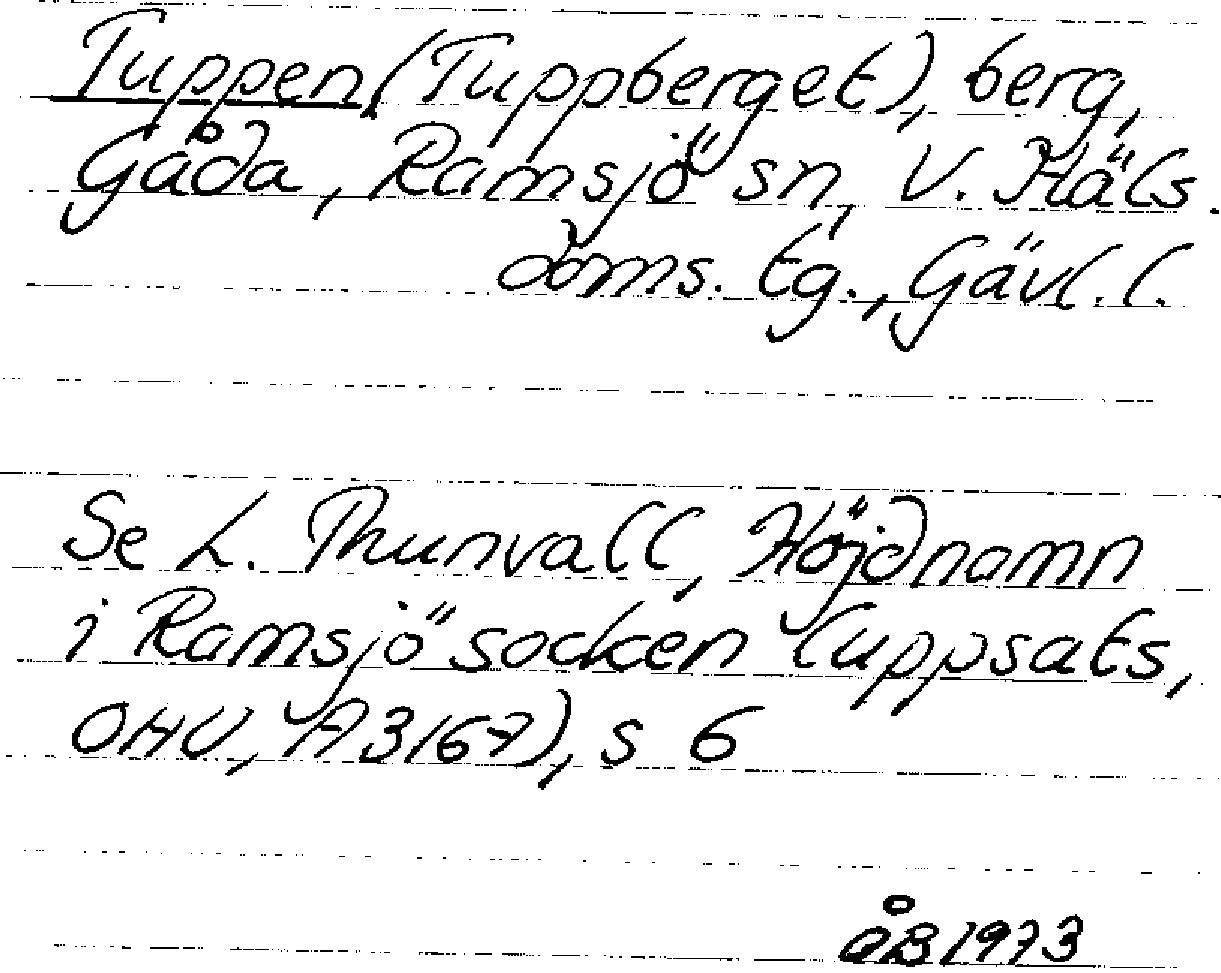 Tuppen (Tuppberget), berg,
Gåda, Ramsjö sn, V. Häls.
doms. tg., Gävl. l.
Se L. Thunvall, Höjdnamn
i Ramsjö socken (uppsats,
OAU, A3167), s 6
åB 1973